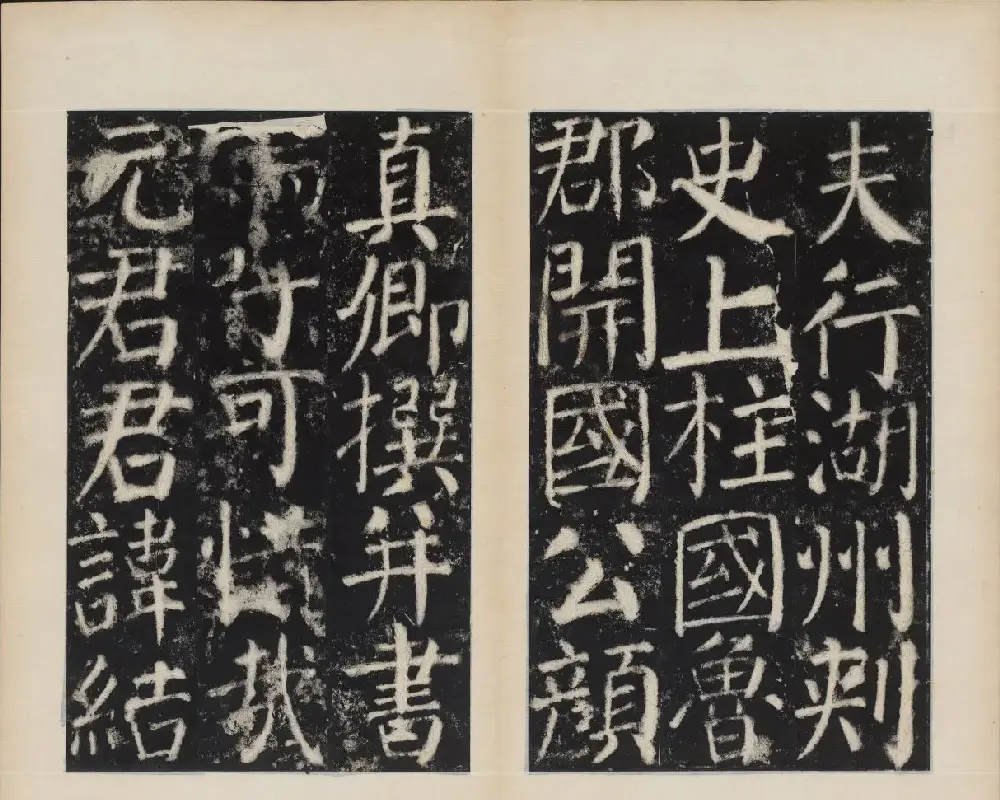 夫行湖州刾
史上柱國魯
郡開國公顏
真卿撰并書
呼可惜哉
元君君諱結